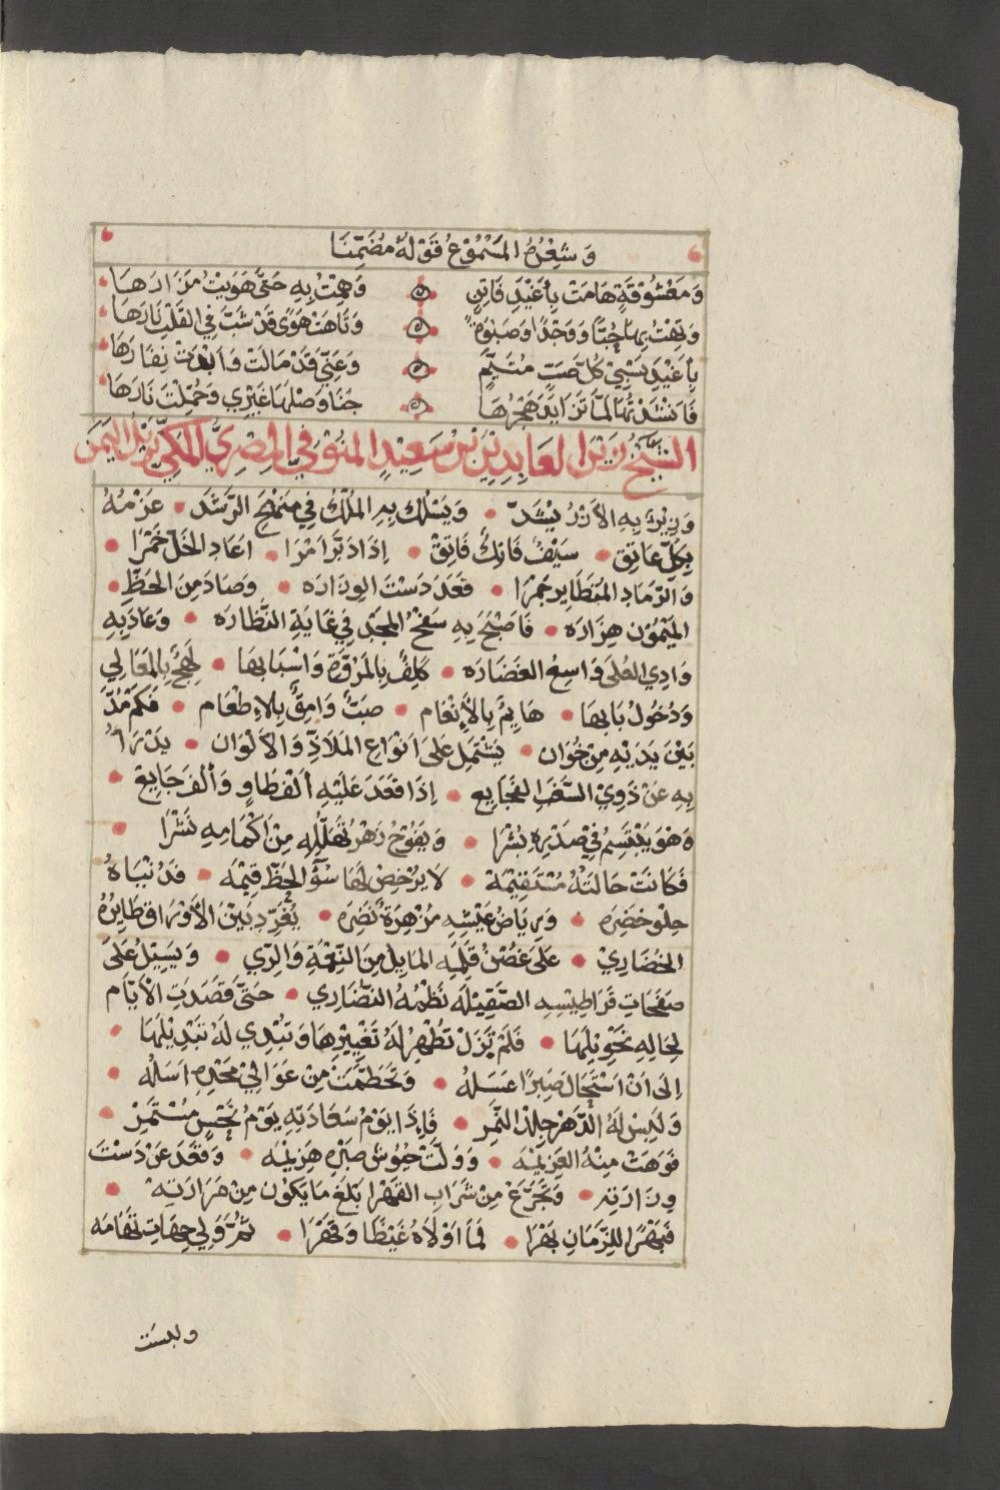 وَشِعْرُهُ الْمَسْمُوعُ قَوْلُهُ مُضَمِّنًا
وَمَعْشُوْقَةٍ هَامَتْ بِأَغْيَدَ فَاتِنٍ وَهِمْتُ بِهِ حَتَّى هَوِيْتُ مَزَارَهَا
وَتِهْتُ بِهَا حُبًّا وَوَجْدًا وَصَبْوَةً وَتَاهَتْ هَوًى قَدْ شَبَّ فِي القَلْبِ نَارَهَا
بِأَغْيَدَ يَسْبِيْ كُلَّ صَبٍّ مُتَيَّمٍ وَعَنِّي قَدْ مَالَتْ وَأَبْدَتْ نِفَارَهَا
فَأَنْشَدْتُهَا لَمَّا تَزَايَدَ هَجْرُهَا جَنَا وَصْلَهَا غَيْرِي وَحُمِّلْتُ نَارَهَا
الشَّيْخُ زَيْنُ العَابِدِيْنَ بْنُ سَعِيْدٍ المَنُوْفِيُّ المِصْرِيُّ المَكِّيُّ نَزِيْلُ اليَمَنِ
وَزِيْرٌ بِهِ الأَزْرُ يُشَدّ وَيَسْلُكُ بِهِ المُلْكُ فِي مَنْهَجِ الرَّشَد عَزْمُهُ
بِكُلِّ عَاتِق سَيْفٌ فَاتِكٌ فَاتِقْ إِذَا دَبَّرَ أَمْرًا اعَادَ الخَلَّ خَمْرًا
وَالرَّمَادَ المُتَطَايِرَ جَمْرًا قَعَدَ دَسْتَ الوِزَارَه وَصَادَ مِنَ الحَظِّ
المَيْمُوْنِ هَزَارَه فَأَصْبَحَ بِهِ سَفْحُ المَجْدِ فِي غَايَةِ النَّظَارَه وَعَادَ بِهِ
وَادِي العُلَى وَاسِعُ الغَضَارَه كَلِفٌ بِالمُرُوَّةِ وَاسْبَابِهَا لَهِجٌ بِالمَعَالِي
وَدُخُوْلِ بَابِهَا هَايِمٌ بِالأَنْعَام صَبٌّ وَامِقٌ بِالإِطْعَام فَكَمْ مَدَّ
بَيْنَ يَدَيْهِ مِنْ خُوَان يَشْتَمِلُ عَلَى انْوَاعِ المَلَاذِّ وَالألْوَان يَدْرَأُ
بِهِ عَنْ ذَوِيْ السَّغَبِ الفَجَايِع إِذَا قَعَدَ عَلَيْهِ أَلْفُ طَاوٍ وَأَلْفُ جَايِع
وَهْوَ يَبْتَسِمُ فِيْ صَدْرِهِ بُشْرًا وَيَفُوْحُ زَهْرُ تَهَلُّلِهِ مِنْ أَكْمَامِهِ نَشْرًا
فَكَانَتْ حَالَتُهُ مُسْتَقِيْمَة لَا يُرْخِصُ لَهَا سُوْءُ الحَظِّ قِيْمَه قَدْ نْيَاهُ
حِلْو خَضِرَه وَرِيَاضُ عَيْشِهِ مُزْهِرَةٌ نَضِرَه يُغَرِّدُ بَيْنَ الأَوْرَاقِ طَايِرُهُ
الخُضَارِيْ عَلَى غُصْنِ قَلَمِهِ المَايِلِ مِنَ النِّعْمَةِ وَالرِّي وَيَسِيْلُ عَلَى
صَفَحَاتِ قَرَاطِيْسِهِ الصَّقِيْلَه نَظْمُهُ النُّضَارِي حَتَّى قَصَدَتِ الأَيَّام
لِحَالِهِ تَحْوِيْلَهَا فَلَمْ تَزَلْ تُظْهِرُ لَهُ تَغْيِيْرَهَا وَتُبْدِي لَهُ تَبْدِيْلَهَا
إِلَى انْ اسْتَحَالَ صَبِرًا عَسَلُهُ وَتَحَطَّمَتْ مِنْ عَوَالِيْ مَجْدِهِ اسَلُه
وَلَبِسَ لَهُ الدَّهْرُ جِلْدَ النَّمِر فَإِذَا يَوْمُ سَعَادَتِهِ يَوْمُ نَحْسٍ مُسْتَمِرّ
فَوَهَتْ مِنْهُ العَزِيْمَه وَوَلَّتْ جُيُوْشُ صَبْرِهِ هَزِيْمَه وَقَعَدَ عَنْ دَسْتَ
وِزَارَتِه وَتَجَرَّعَ مِنْ شَرَابِ القَهْرِ ابْلَغَ مَا يَكُوْنُ مِنْ مَرَارَتِه
فَبَهْرًا لِلزَّمَانِ بَهْرًا لِمَا اوْلَاهُ غَيْظًا وَقَهْرًا ثُمَّ وَلِي جِهَاتِ تِهَامَه
وليست